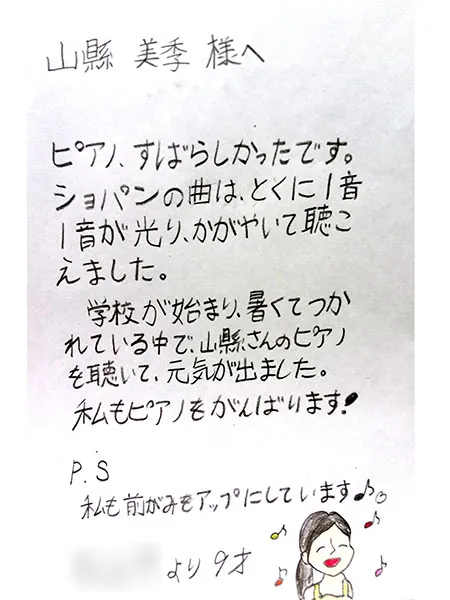 山縣 美季 様へ
ピアノ、すばらしかったです。
ショパンの曲は、とくに1音
1音が光り、かがやいて聴こ
えました。
学校が始まり、暑くてつか
れている中で、山縣さんのピアノ
を聴いて、元気が出ました。
私もピアノをがんばります!
P.S
私も前がみをアップにしています♪。
より 9才